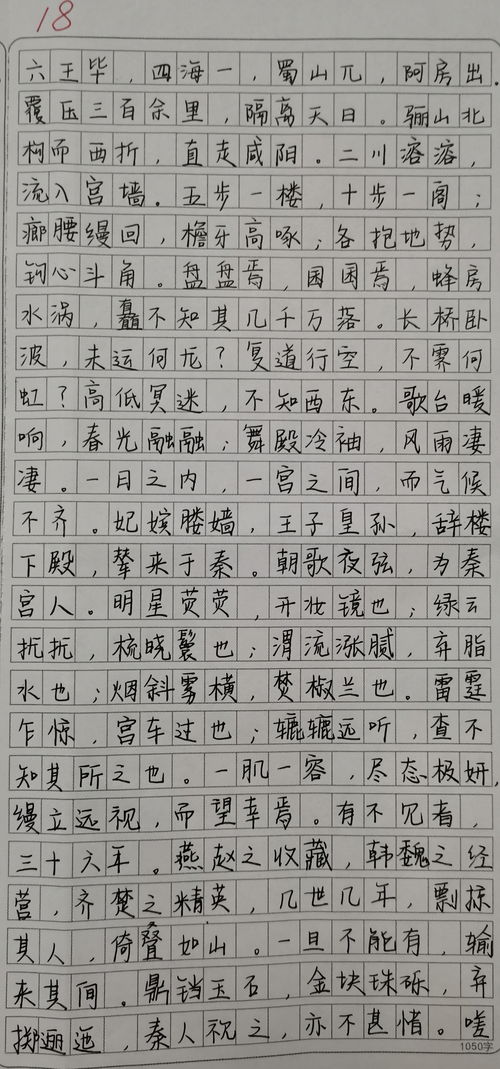 18
六王毕，四海一，蜀山兀，阿房出．
覆压三百余里，隔离天日。骊山北
构而西折，直走咸阳。二川溶溶，
流入宫墙。五步一楼，十步一阁；
廊腰缦回，檐牙高啄；各抱地势，
钩心斗角。盘盘焉，囷囷焉，蜂房
水涡，矗不知其几千万落。长桥卧
波，未运何龙？复道行空，不霁何
虹？高低冥迷，不知西东。歌台暖
响，春光融融；舞殿冷袖，风雨凄
凄。一日之内，一宫之间，而气候
不齐。妃嫔媵嫱，王子皇孙，辞楼
下殿，辇来于秦。朝歌夜弦，为秦
宫人。明星荧荧，开妆镜也；绿云
扰扰，梳晓鬟也；渭流涨腻，弃脂
水也；烟斜雾横，焚椒兰也。雷霆
乍惊，宫车过也；辘辘远听，查不
知其所之也。一肌一容，尽态极妍，
缦立远视，而望幸焉。有不见者，
三十六年。燕赵之收藏，韩魏之经
营，齐楚之精英，几世几年，剽掠
其人，倚叠如山。一旦不能有，输
来其间。鼎铛玉石，金块珠砾，弃
掷逦迤，秦人视之，亦不甚惜。嗟
1050字